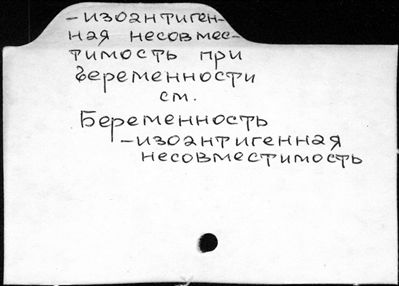 -изоантиген-
ная несовмес-
тимость при
беременности
см.
Беременность
-изоантигенная
несовместимость